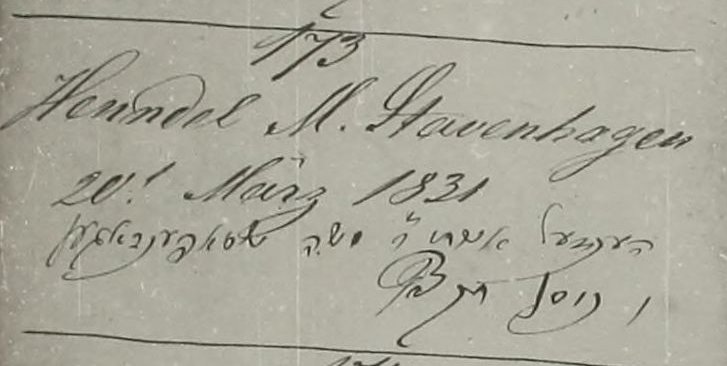 173
Henndel M. Stavenhagen
20t März 1831
הענדעל אשת ה' משה שטאפענהאגען
ו ניסן תקצ